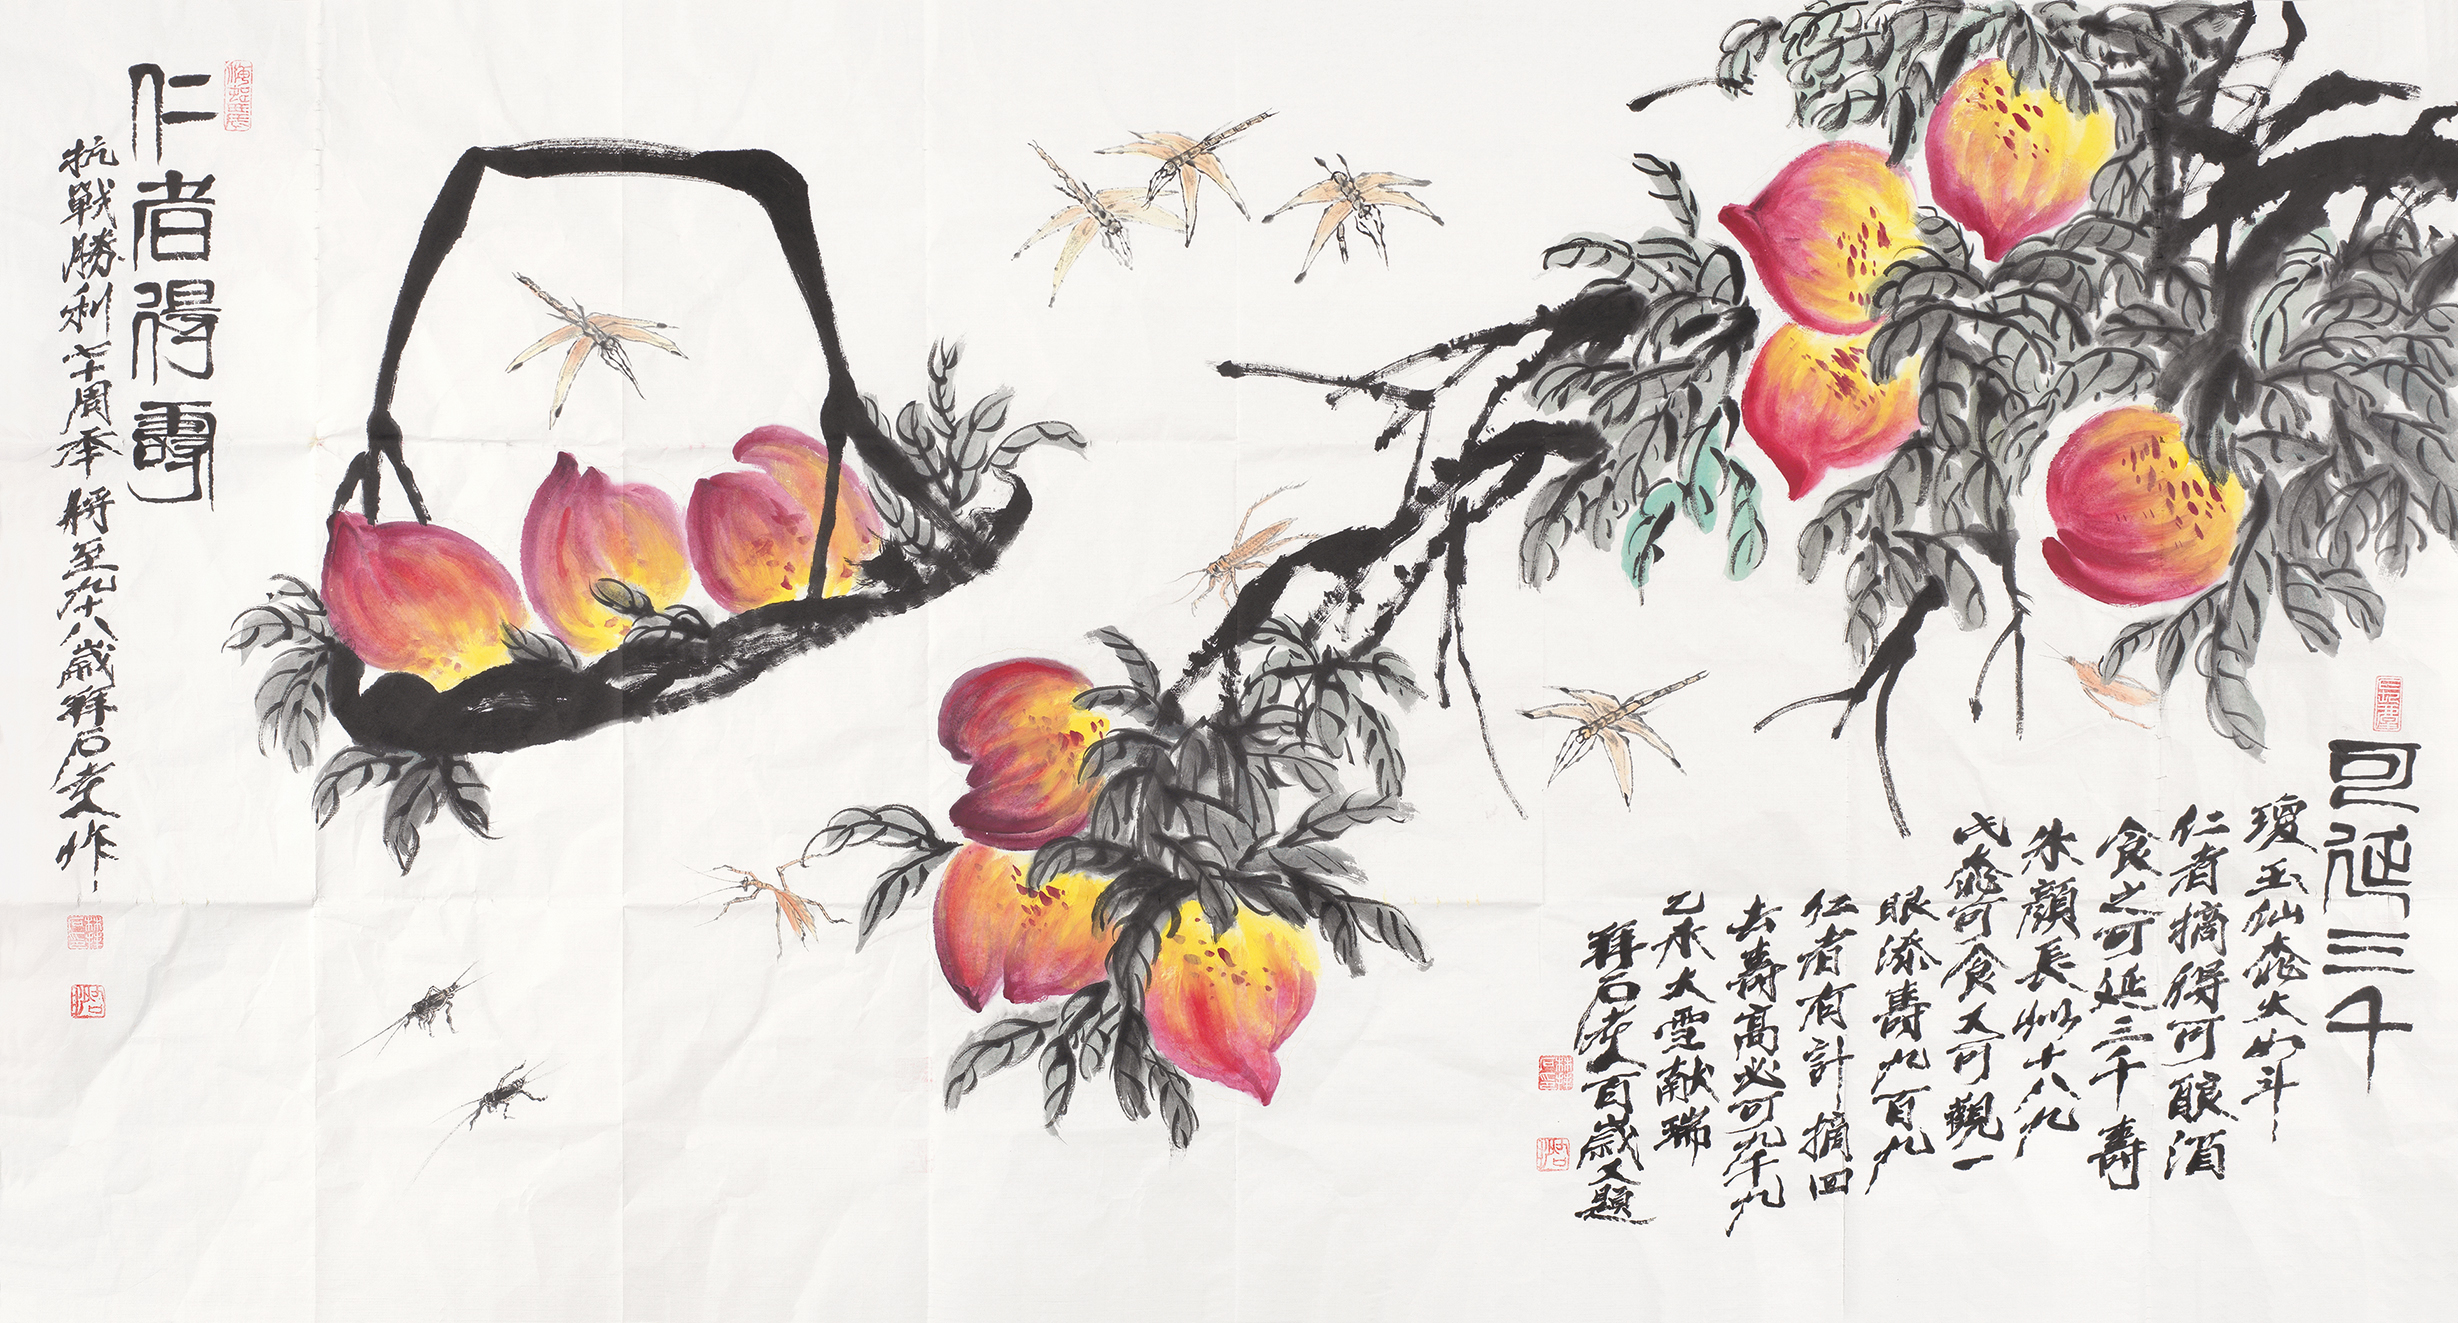 可延三千
瓊玉仙桃大如斗
仁者摘得可酿酒
食之可延三千壽
朱顏長似十八九
此桃可食又可觀一
眼添壽九百九
仁者有計摘回
去壽高必可九千九
乙未大雪献瑞
拜石老人百歲又題
仁者得壽
抗戰勝利七十周年將至九十八歲拜石老人作